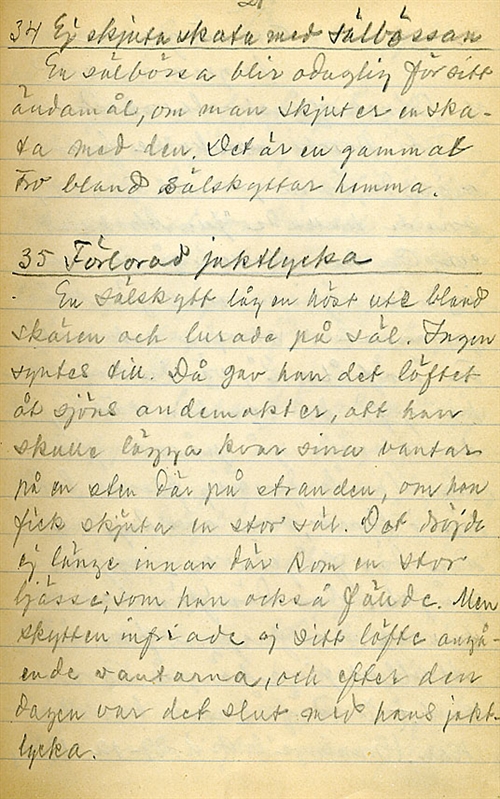 34 Ej skjuta skata med sälbössan
En sälbössa blir oduglig för sitt
ändamål, om man skjuter en ska-
ta med den. Det är en gammal
tro bland sälskyttar hemma.
35 Förlorad jaktlycka
En sälskytt låg en höst ute bland
skären och lurade på säl. Ingen
syntes till. Då gav han det löftet
åt sjöns andemakter, att han
skulle lägga kvar sina vantar
på en sten där på stranden, om han
fick skjuta en stor säl. Det dröjde
ej länge innan där kom en stor
bjässe, som han också fällde. Men
skytten infriade ej sitt löfte angå-
ende vantarna, och efter den
dagen var det slut med hans jakt-
lycka.